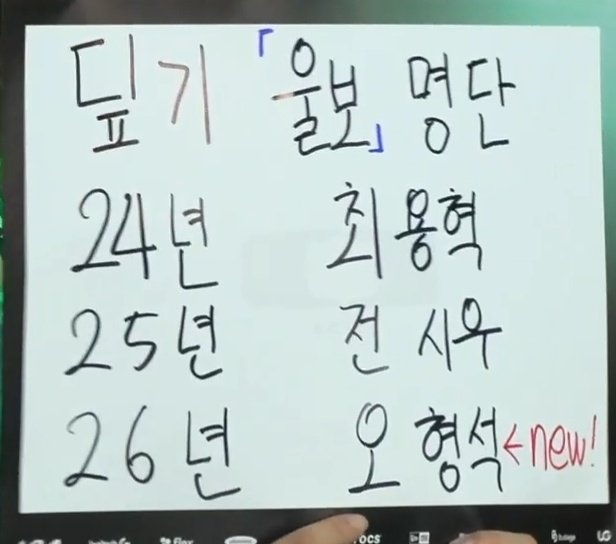 딮기 「울보」 명단
24년 최용혁
25년 전시우
26년 오형석 ←new!